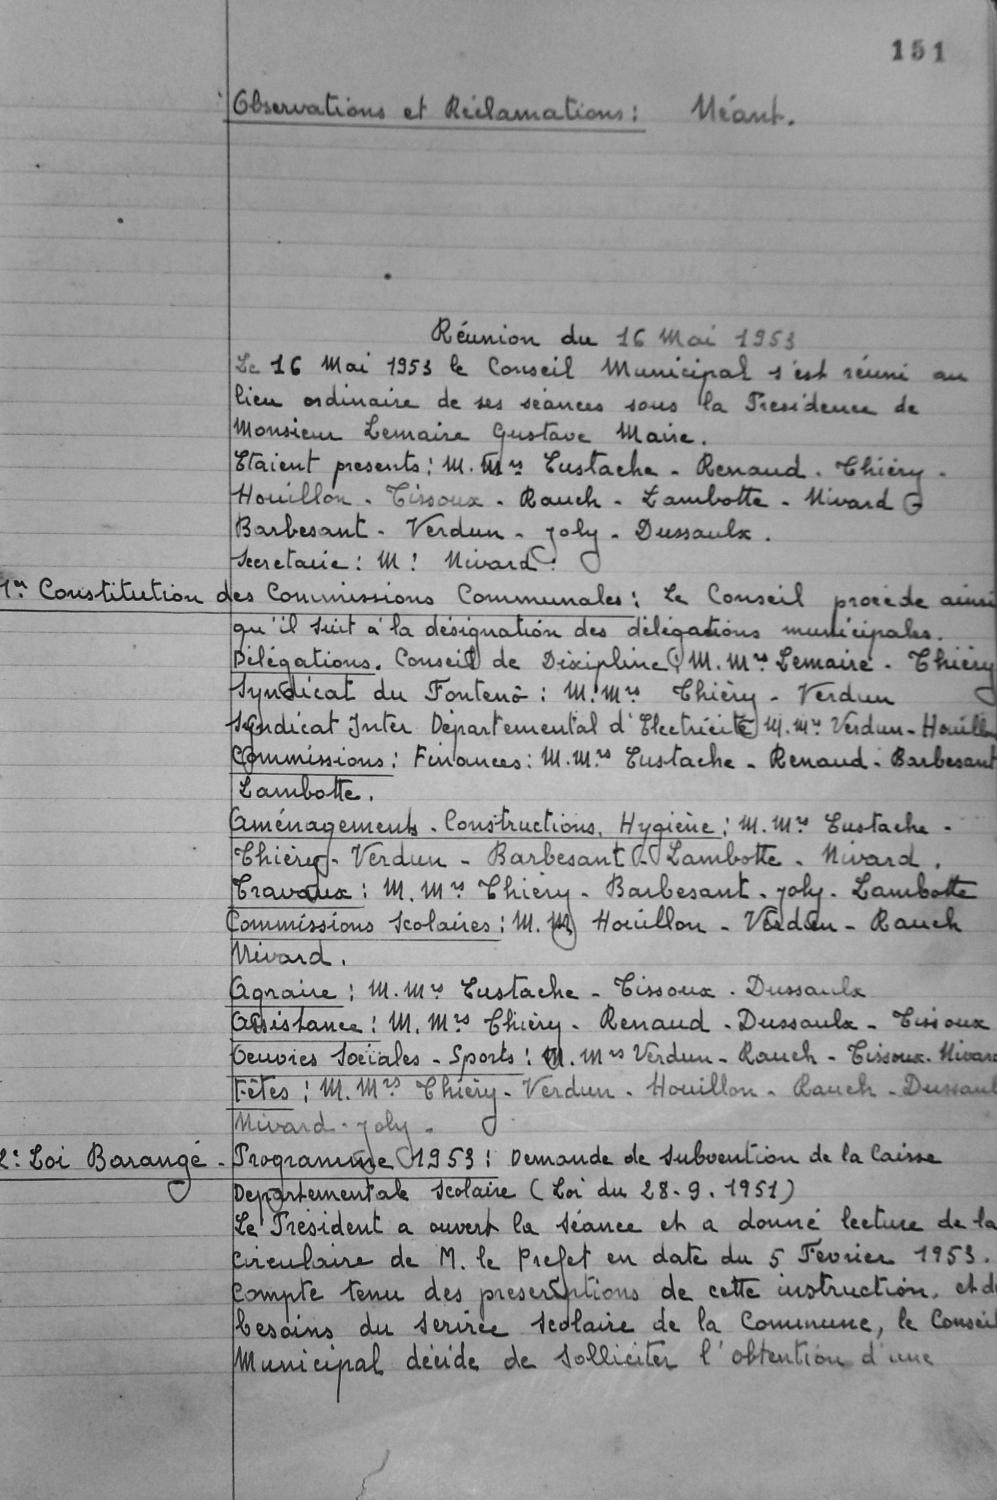 151
Observations et Réclamations : Néant.
Réunion du 16 Mai 1953
Le 16 Mai 1953 le Conseil Municipal s'est réuni au
lieu ordinaire de ses séances sous la Presidence de
Monsieur Lemaire Gustave Maire.
Etaient presents : M. Mrs Eustache - Renaud - Thiéry -
Houillon - Tissoux - Rauch - Lambotte - Nivard -
Barbesant - Verdun - Joly - Dussaulx.
Secretaire : M : Nivard.
1er Constitution des Commissions Communales : Le Conseil procède ainsi
qu'il suit à la désignation des délégations municipales.
Délégations. Conseil de Discipline : M. Mrs Lemaire - Thiéry
Syndicat du Fontenô : M. Mrs Thiéry - Verdun
Syndicat Inter Départemental d'Electricité M. Mrs Verdun - Houillon
Commissions : Finances : M. Mrs Eustache - Renaud - Barbesant
Lambotte.
Aménagements - Constructions, Hygiène : M. Mrs Eustache -
Thiéry - Verdun - Barbesant - Lambotte - Nivard.
Travaux : M. Mrs Thiéry - Barbesant - Joly - Lambotte
Commissions Scolaires : M. M Houillon - Verdun - Rauch
Nivard.
Agraire : M. Mrs Eustache - Tissoux - Dussaulx
Assistance : M. Mrs Thiéry - Renaud - Dussaulx - Tissoux
Oeuvres Sociales - Sports : M. Mrs Verdun - Rauch - Tissoux - Nivard
Fêtes : M. Mrs Thiéry - Verdun - Houillon - Rauch - Dussaul
Nivard - Joly -
2: Loi Barangé - Programme 1953 : Demande de subvention de la Caisse
Departementale Scolaire (Loi du 28-9-1951)
Le Président a ouvert la séance et a donné lecture de la
circulaire de M. le Prefet en date du 5 Fevrier 1953.
Compte tenu des prescriptions de cette instruction, et de
besoins du service scolaire de la Commune, le Conseil
Municipal décide de solliciter l'obtention d'une